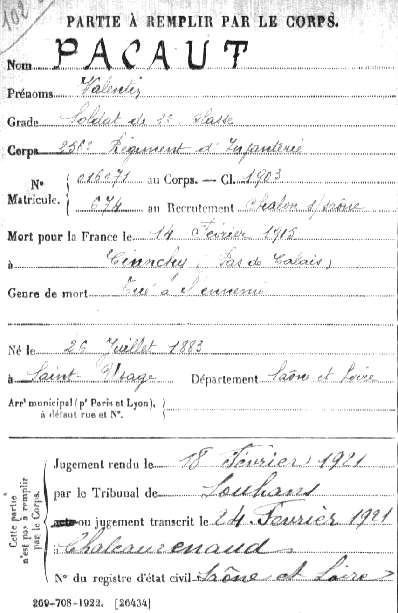 102
PARTIE À REMPLIR PAR LE CORPS.
Nom PACAUT
Prénoms Valentin
Grade Soldat de 2e Classe
Corps 256e Régiment d'Infanterie
No Matricule. { 016071 au Corps. — Cl. 1903
674 au Recrutement Chalon s/saône
Mort pour la France le 14 Février 1915
à Cuinchy (Pas de Calais)
Genre de mort Tué à l'ennemi
Né le 26 Juillet 1883
à Saint-Usage Département Saône et Loire
Arrt municipal (pr Paris et Lyon), à défaut rue et No.
Cette partie n'est pas à remplir par le Corps.
Jugement rendu le 18 Février 1921
par le Tribunal de Louhans
acte ou jugement transcrit le 24 Février 1921
à Chateaurenaud
No du registre d'état civil Saône et Loire
269-708-1922. [26434]